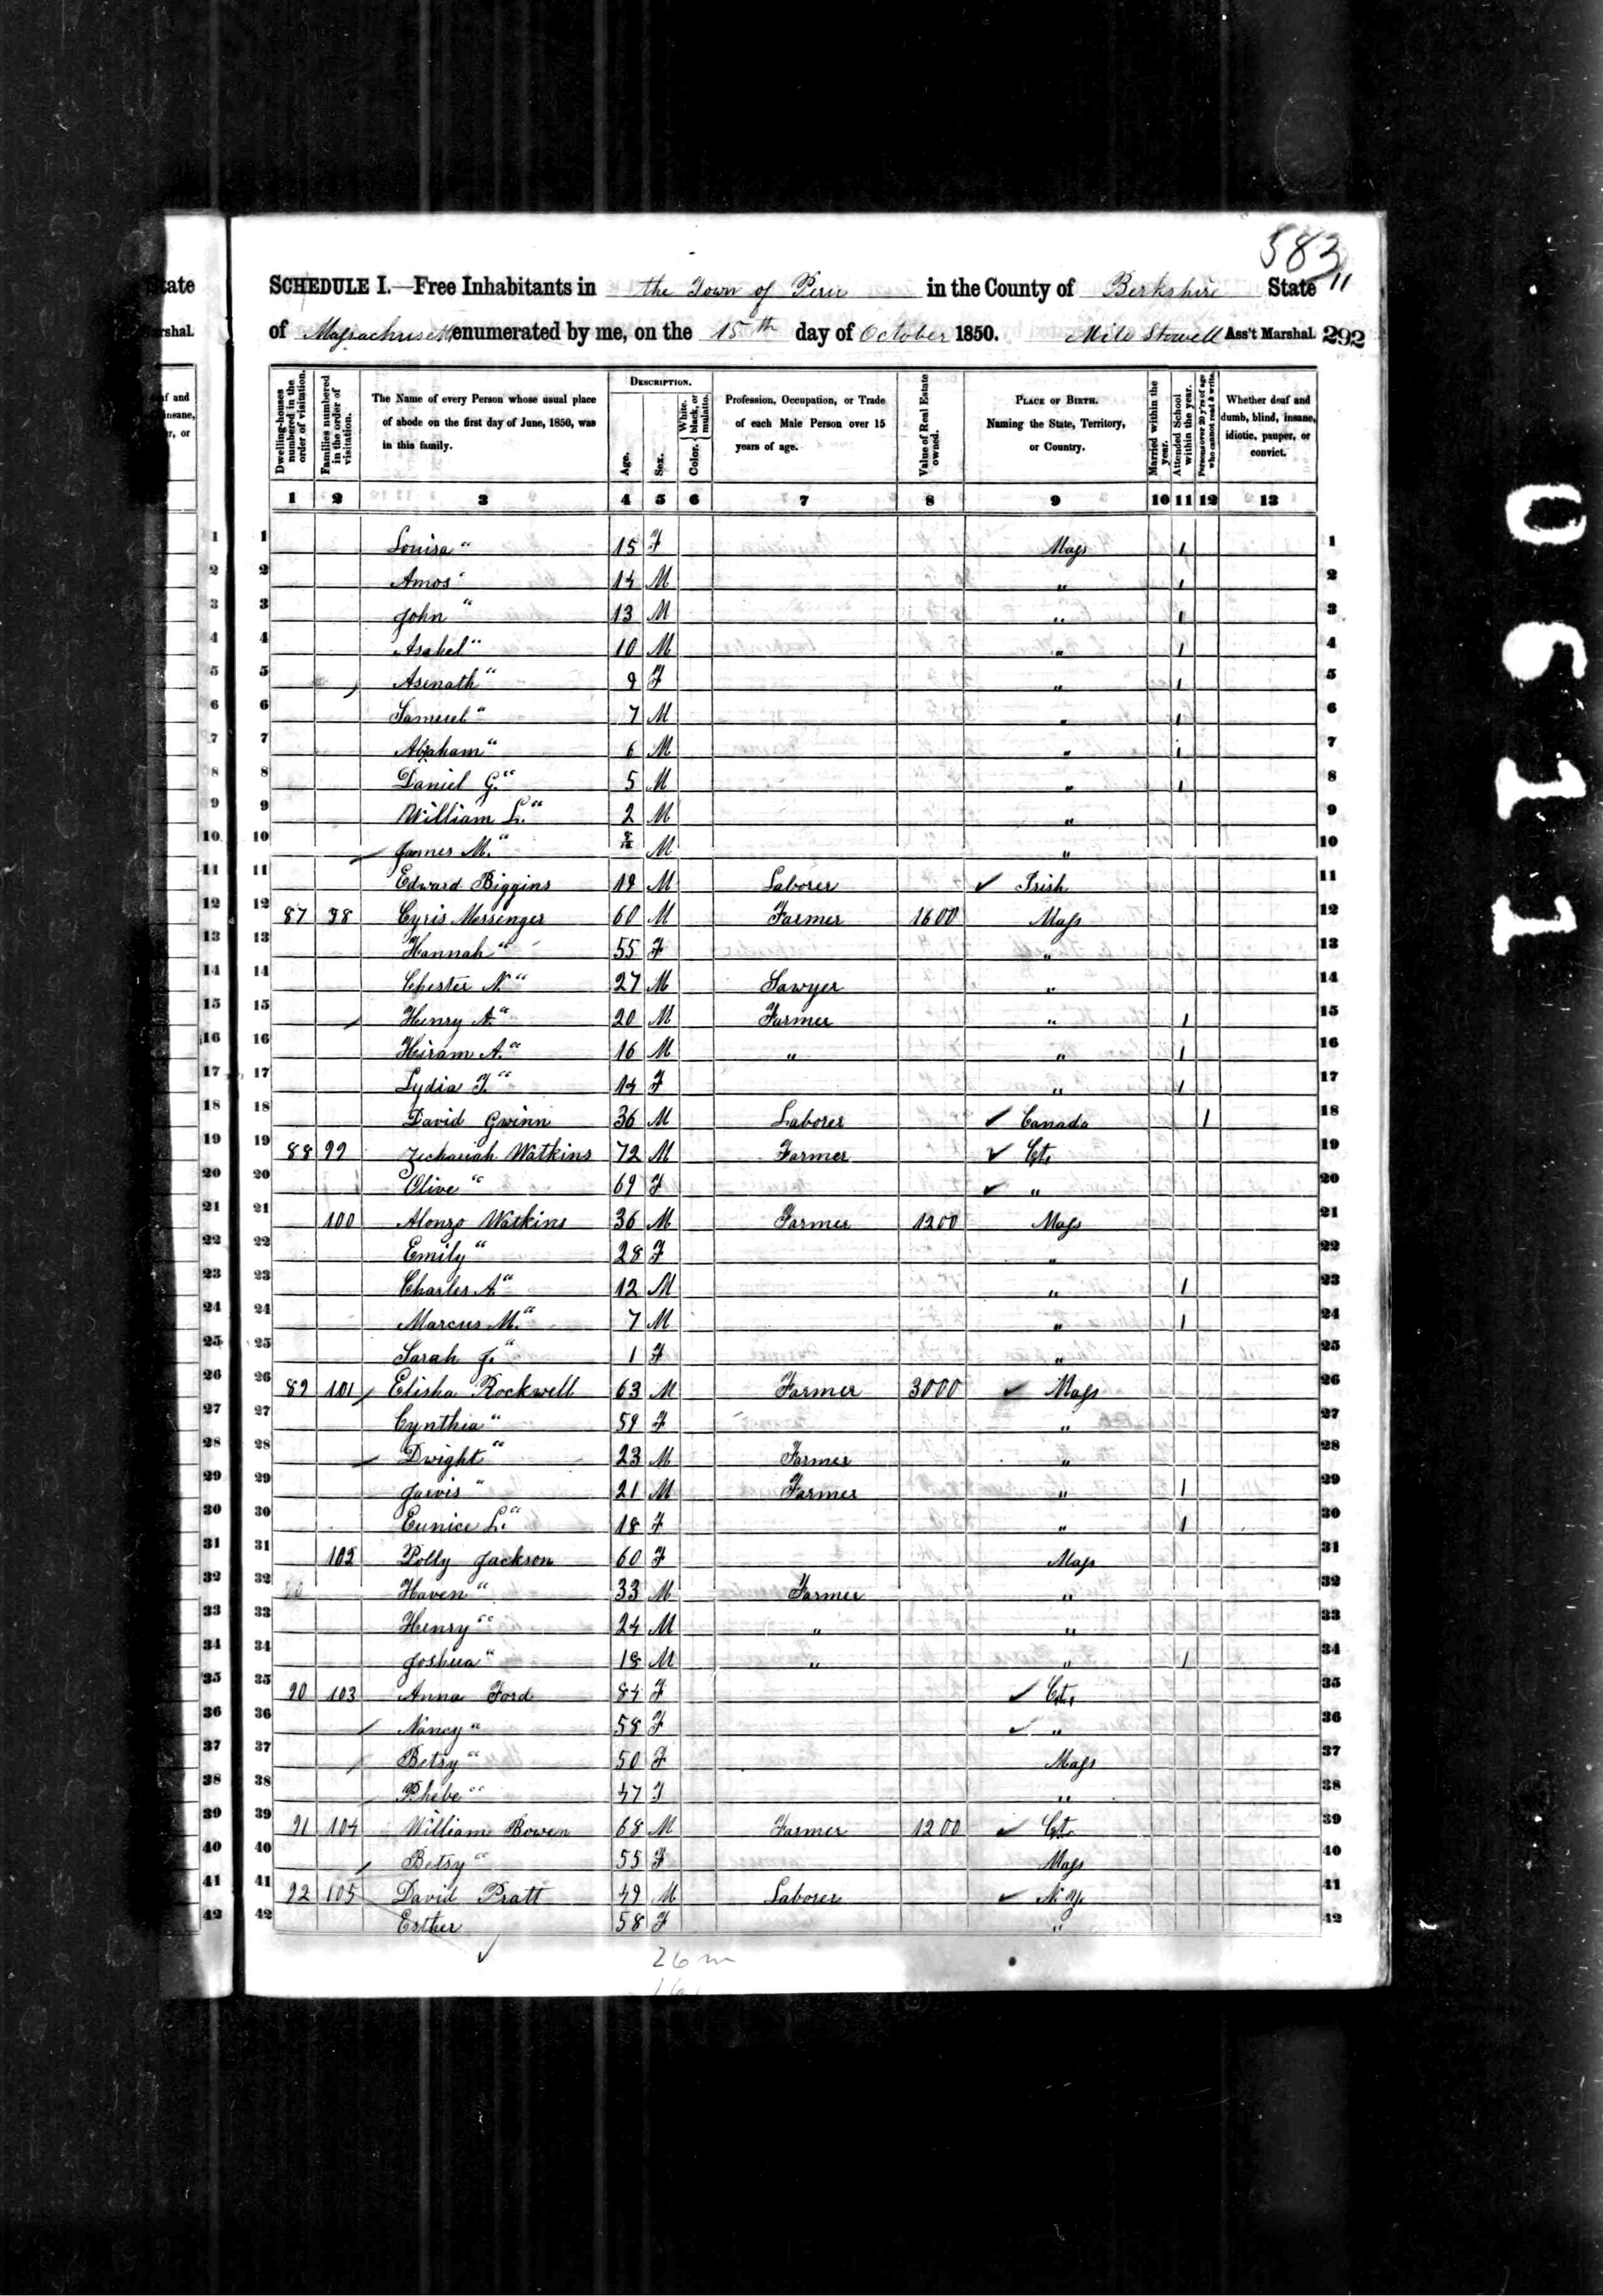 583
11
SCHEDULE I.—Free Inhabitants in the Town of Peru in the County of Berkshire State
of Massachusetts enumerated by me, on the 15th day of October 1850. Milo Stowell Ass't Marshal. 292
Dwelling-houses numbered in the order of visitation.
Families numbered in the order of visitation.
The Name of every Person whose usual place of abode on the first day of June, 1850, was in this family.
DESCRIPTION.
Age.
Sex.
Color. White, black, or mulatto.
Profession, Occupation, or Trade of each Male Person over 15 years of age.
Value of Real Estate owned.
PLACE OF BIRTH. Naming the State, Territory, or Country.
Married within the year.
Attended School within the year.
Persons over 20 y'rs of age who cannot read & write.
Whether deaf and dumb, blind, insane, idiotic, pauper, or convict.
1 2 3 4 5 6 7 8 9 10 11 12 13
1 Louisa " 15 F Mass 1 1
2 Amos " 14 M " 1 2
3 John " 13 M " 1 3
4 Asahel " 10 M " 1 4
5 Asenath " 9 F " 1 5
6 Samuel " 7 M " 1 6
7 Abraham " 6 M " 1 7
8 Daniel G. " 5 M " 1 8
9 William L. " 2 M " 9
10 James M. " M " 10
11 Edward Biggins 19 M Laborer ✓ Irish 11
12 87 98 Cyris Messenger 60 M Farmer 1600 Mass 12
13 Hannah " 55 F " 13
14 Chester N. " 27 M Sawyer " 14
15 Henry A. " 20 M Farmer " 1 15
16 Hiram A. " 16 M " " 1 16
17 Lydia T. " 14 F " 1 17
18 David Gwinn 36 M Laborer ✓ Canada 1 18
19 88 99 Zechariah Watkins 72 M Farmer ✓ Ct. 19
20 Olive " 69 F ✓ " 20
21 100 Alonzo Watkins 36 M Farmer 1200 Mass 21
22 Emily " 28 F " 22
23 Charles A. " 12 M " 1 23
24 Marcus M. " 7 M " 1 24
25 Sarah J. " 1 F " 25
26 89 101 Elisha Rockwell 63 M Farmer 3000 ✓ Mass 26
27 Cynthia " 59 F " 27
28 Dwight " 23 M Farmer " 28
29 Jarvis " 21 M Farmer " 1 29
30 Eunice L. " 18 F " 1 30
31 102 Polly Jackson 60 F Mass 31
32 Haven " 33 M Farmer " 32
33 Henry " 24 M " " 33
34 Joshua " 18 M " " 1 34
35 90 103 Anna Ford 84 F ✓ Ct. 35
36 Nancy " 58 F ✓ " 36
37 Betsy " 50 F Mass 37
38 Phebe " 47 F " 38
39 91 104 William Bowen 68 M Farmer 1200 ✓ Ct. 39
40 Betsy " 55 F Mass 40
41 92 105 David Pratt 49 M Laborer ✓ N.Y. 41
42 Esther 58 F " 42
26 m
0611